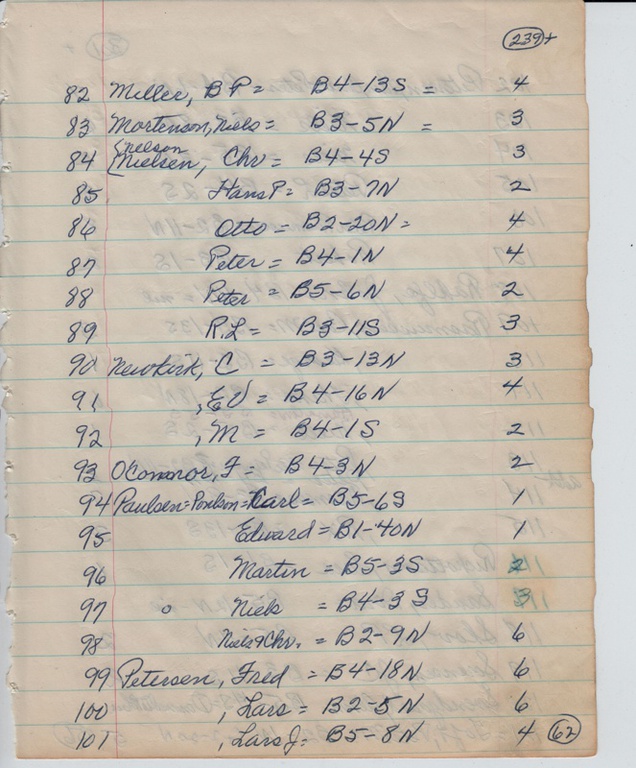 239+
82 Miller, B P = B4-13S = 4
83 Mortenson, Niels = B3-5N = 3
{nelson
84 {Nielsen, Chr = B4-4S 3
85 Hans P = B3-7N 2
86 Otto = B2-20N = 4
87 Peter = B4-1N 4
88 Peter = B5-6N 2
89 R.L = B3-11S 3
90 Newkirk, C = B3-13N 3
91 , EV = B4-16N 4
92 , M = B4-1S 2
93 OConnor, F = B4-3N 2
94 Paulsen=Poulson=Carl = B5-6S 1
95 Edward = B1-40N 1
96 Martin = B5-3S 2
97 Niels = B4-3S 3
98 Niels & Chr. = B2-9N 6
99 Petersen, Fred = B4-18N 6
100 , Lars = B2-5N 6
101 , Lars J = B5-8N 4 62